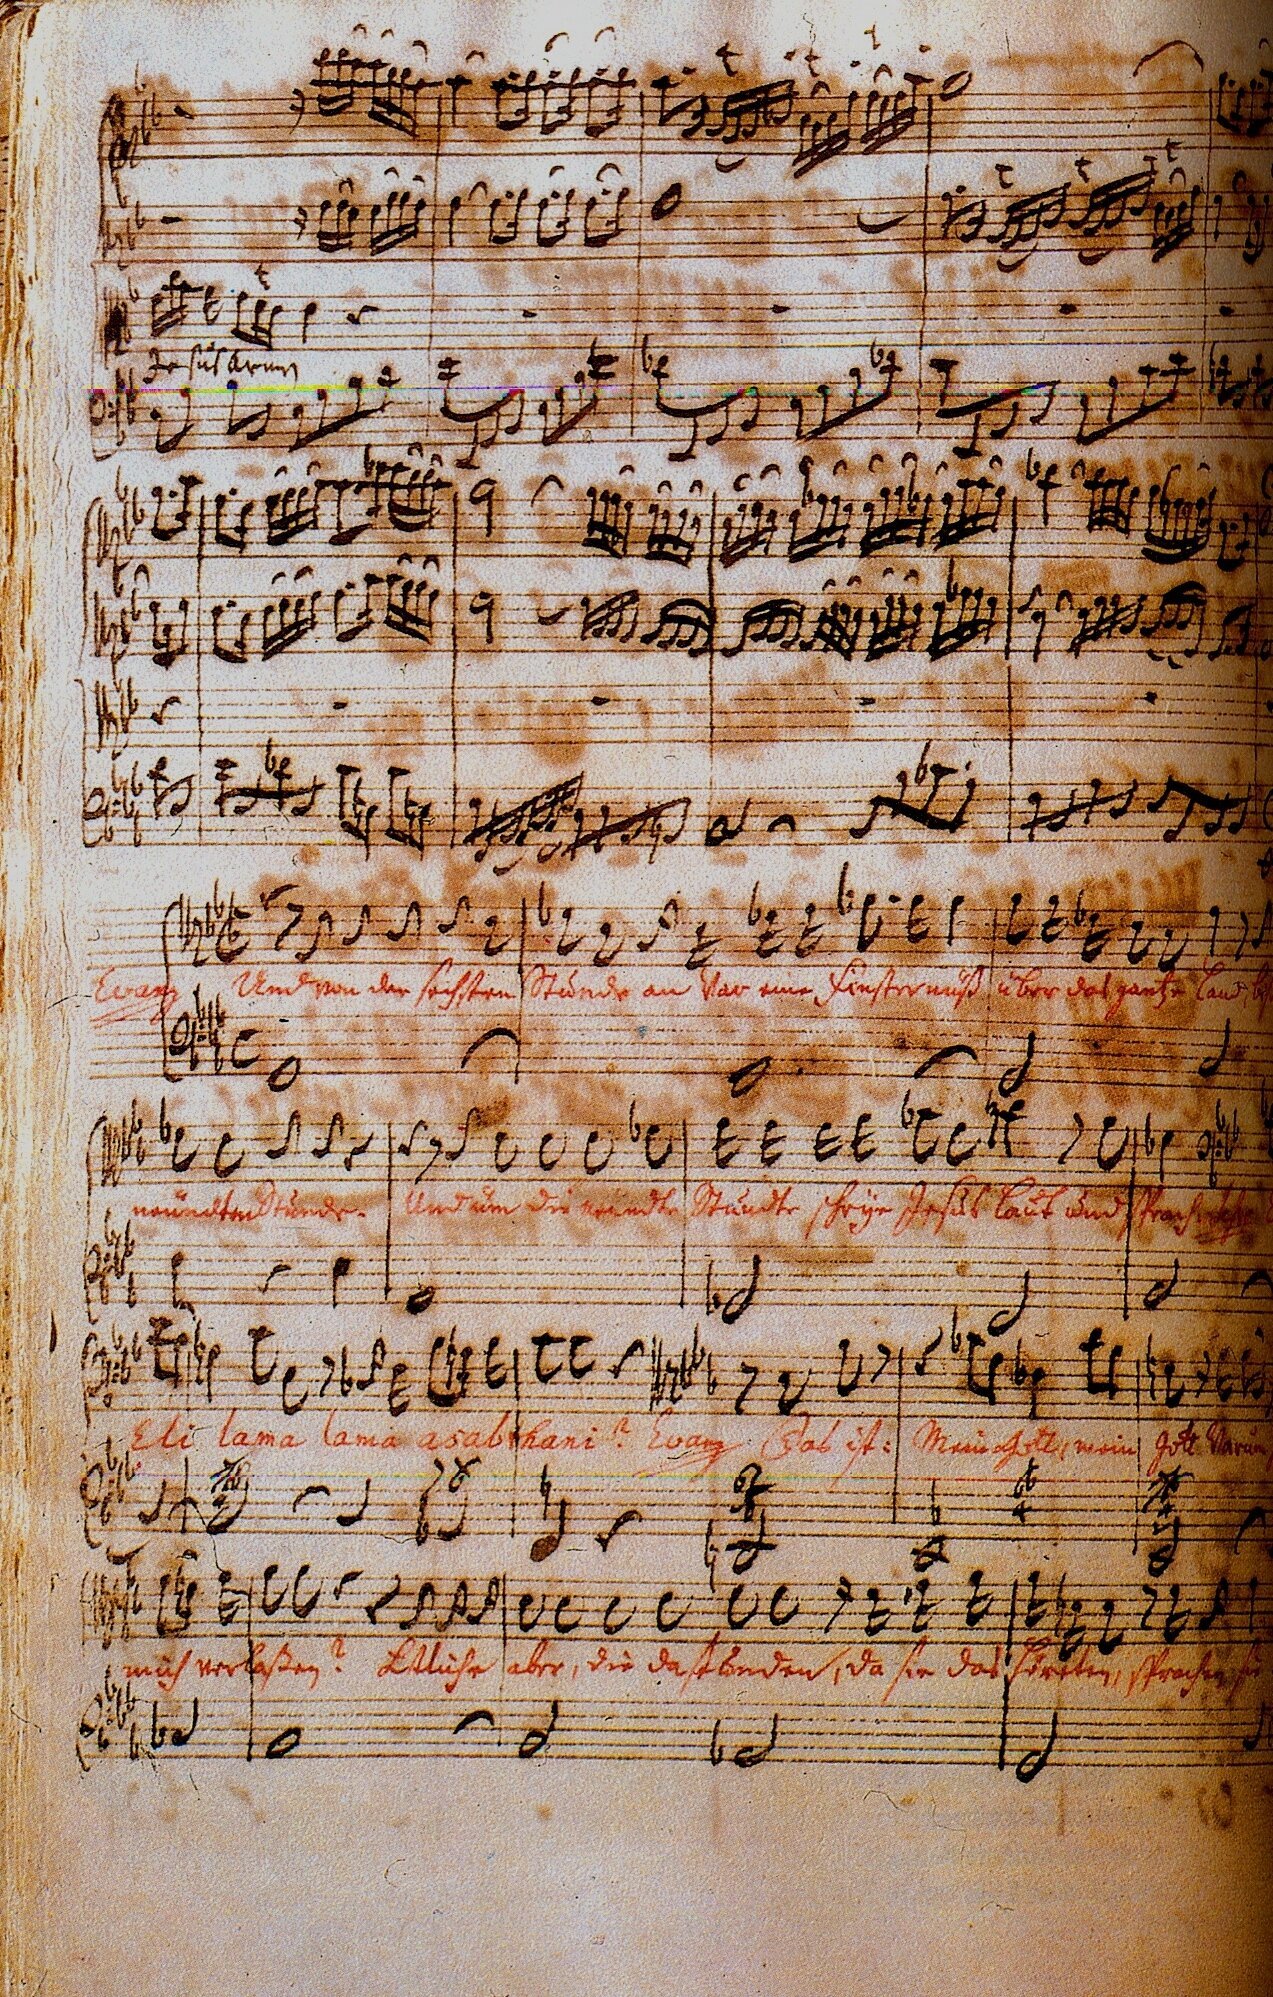 Jesus Armen
Evang Und von der sechsten Stunde an war eine Finsternüß über das gantze Land
neündten Stunde. Und üm die neündte Stunde schrye Jesus laut und sprach
Eli lama lama asabthani? Evang Das ist: Mein Gott, mein Gott warum
mich verlaßen? Etliche aber, die da stunden, da sie das höreten, sprachen